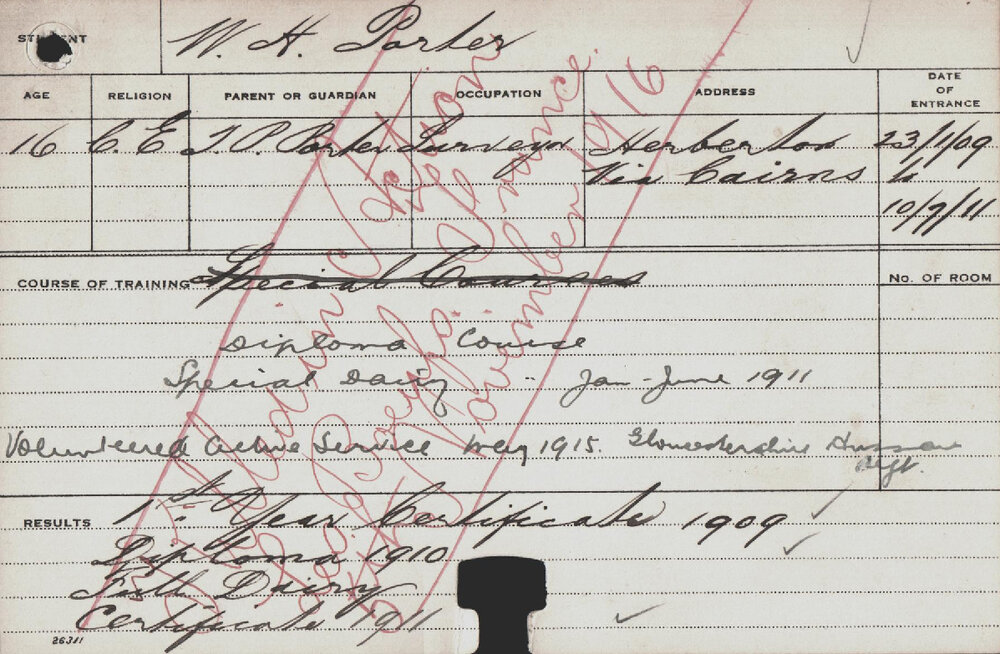 STUDENT W. H. Porter
AGE RELIGION PARENT OR GUARDIAN OCCUPATION ADDRESS DATE OF ENTRANCE
16 C. E J. P. Porter Surveyor Herberton 23/1/09
Via Cairns to
10/7/11
COURSE OF TRAINING Special Courses No. OF ROOM
Diploma Course
Special Dairy " Jan - June 1911
Volunteered Active Service May 1915. Gloucestershire Hussars
Regt.
RESULTS 1st Year Certificate 1909
Diploma 1910
Full Dairy
Certificate 1911
26311
in Action
Corps.
France
November 1916